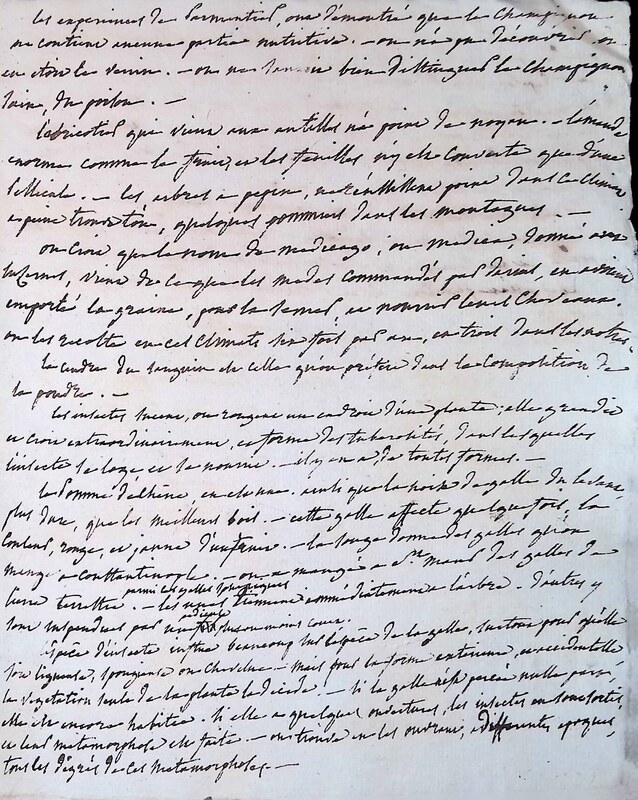 les experiences de Parmentier, ont démontré que le champignon
ne contient aucune partie nutritive. - on n'a pu découvrir, où
en étoit le venin. - on ne bien distinguer le champignon
sain, du poison. -
l'abricotier qui vient aux antilles n'a point de noyau. - l'amande
enorme comme le fruit, et les feuilles n'y est couverte que d'une
pellicule. - les arbres a pepin, ne point dans ce climat
a peine trouve t'on, quelques pommiers dans les montagnes. -
on croit que le nom de medicago, ou medica, donné a la
luzerne, vient de ce que les medes commandés par Darius, en avoient
emporté la graine, pour la semer, et nourrir leurs chevaux.
on les recolte en ces climats fois par an, et trois dans les notres.
la cendre du sanguin est celle qu'on préfère dans la composition de
la poudre. -
les insectes sucent, ou rongent un endroit d'une plante; elle grandit
et croit extraordinairement, et forme des tuberosités, dans lesquelles
l'insecte se loge et se nourrit. - il y en a de toutes formes. -
la pomme de chêne, en est une. ainsi que la noix de galle du levant,
plus dure, que les meilleurs bois. - cette galle affecte quelque fois, la
couleur, rouge, et jaune d'un fruit. - la sauge donne des galles qu'on
mange a Constantinople. - on a mangé a St. des galles de
lierre terrestre. - parmi les galles les unes tiennent immédiatement a l'arbre. d'autres y
sont suspendues par un pedicule plus ou moins court.
l'espèce d'insecte influe beaucoup sur l'espèce de la galle, surtout pour qu'elle
soit ligneuse, spongieuse ou - mais pour la forme exterieure, accidentelle
la vegetation seule de la plante la décide. - si la galle n'est percée nulle part,
elle est encore habitée. si elle a quelques ouvertures, les insectes en sont sortis,
et leur metamorphose est faite. - on trouve en les ouvrant, a differentes epoques,
tous les degrés de ces metamorphoses. -